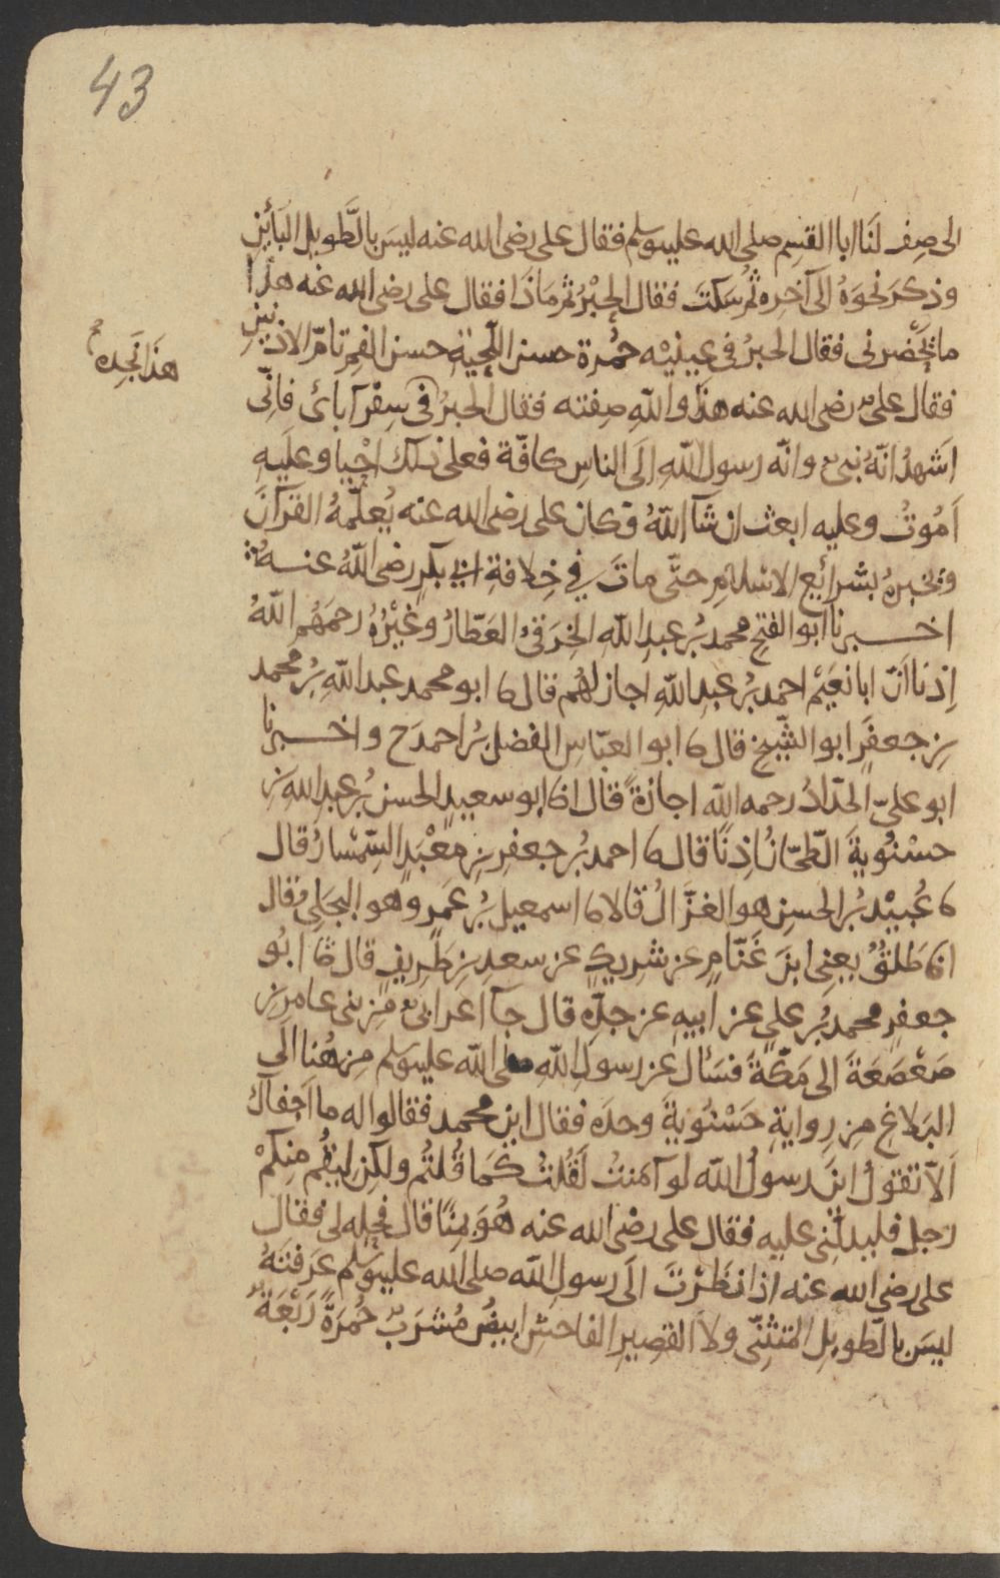 43
الى صف لنا ابا القسم صلى الله عليه وسلم فقال على رضى الله عنه ليس بالطَّويل البَائِن
وذكرَ نحوَهُ الى آخره ثم سَكَتَ فقال الحِبْرُ ثم مَاذَا فقال على رضى الله عنه هذا
ما يَحْضرنى فقال الحبرُ فى عينيْه حُمْرة حسن اللّحيَة حسن الفم تامّ الاذنين
هذا نَجِده
فقال علىّ رضى الله عنه هذَا واللّهِ صِفته فقال الحبرُ فى سِفْر آبائ فانّى
اَشهدُ انّهُ نبىّ وانّه رسول اللّهِ اِلَى الناسِ كافّة فعلى ذلك اَحْيا وعلَيهِ
اَمُوتُ وعليه ابعث ان شآ اللّهُ فكان على رضى الله عنه يُعلّمهُ القرآنَ
ويخبرهُ بشرائعِ الاسلام حتّى ماتَ فى خِلافةِ ابى بكرٍ رضى اللّهُ عنـه
اخـبرنا ابو الفتح محمد بُن عبدِ اللّهِ الخِرَقىُّ العَطّارُ وغيْرُهُ رحمَهُم اللّهُ
اِذنا اَنّ ابا نعَيْم احمد بُن عبدِ اللّهِ اجاز لهُم قال ابو محمد عبد اللّهِ بنُ محمد
بن جعفرٍ ابو الشّيخِ قال ابو العبّاسِ الفضل بنُ احمد ح واخـبرنا
ابو علىّ الحدّادُ رحمه اللّه اجازةً قال انا ابو سعيدٍ الحسن بُن عبد الله بن
حسْنُويةَ الطّحّانُ اِذنًا قال احمد بُن جعفرِ بن مَعْبَدٍ السّمْسارُ قال
عُبيْد بُن الحسنِ هو الغزّالُ قالا اسمعيل بنُ عَمرٍ وهو البجلى قال
انا طَلقٌ يعنى ابنَ غَنّامٍ عن شريكٍ عن سعدِ بن طَرِيفٍ قال ابُو
جعفرٍ محمد بُن علىٍّ عن ابيهِ عن جدّه قال جآ اعرابىّ من بنى عامرِ بن
صَعْصَعَةَ الى مَكّةَ فسَأل عن رسول اللّهِ صلى اللّه عليه وسلم مِن هُنا الَى
البَلاغ مِن رِوايةِ حَسْنُويةَ وحدَه فقال اين محمد فقالوا له ما اَجفاكَ
اَلاّ تقولُ اينَ رسولُ اللّه لو آمنتُ لَقُلتُ كَما قُلتُم ولكِن لِيَقُم مِنكمْ
رَجل فليدلّنِى عليهِ فقال على رضى الله عنه هُوَ مِنّا قال فجلّه لى فقال
على رضى الله عنه اذا نظَرْتَ الَى رسولِ اللّه صلى الله عليه وسلم عَرَفتَهُ
ليسَ بالطويلِ المتثنّى ولا القصيرِ الفاحشِ ابيضُ مُشرَبٌ حُمرَةً رَبْعَةٌ